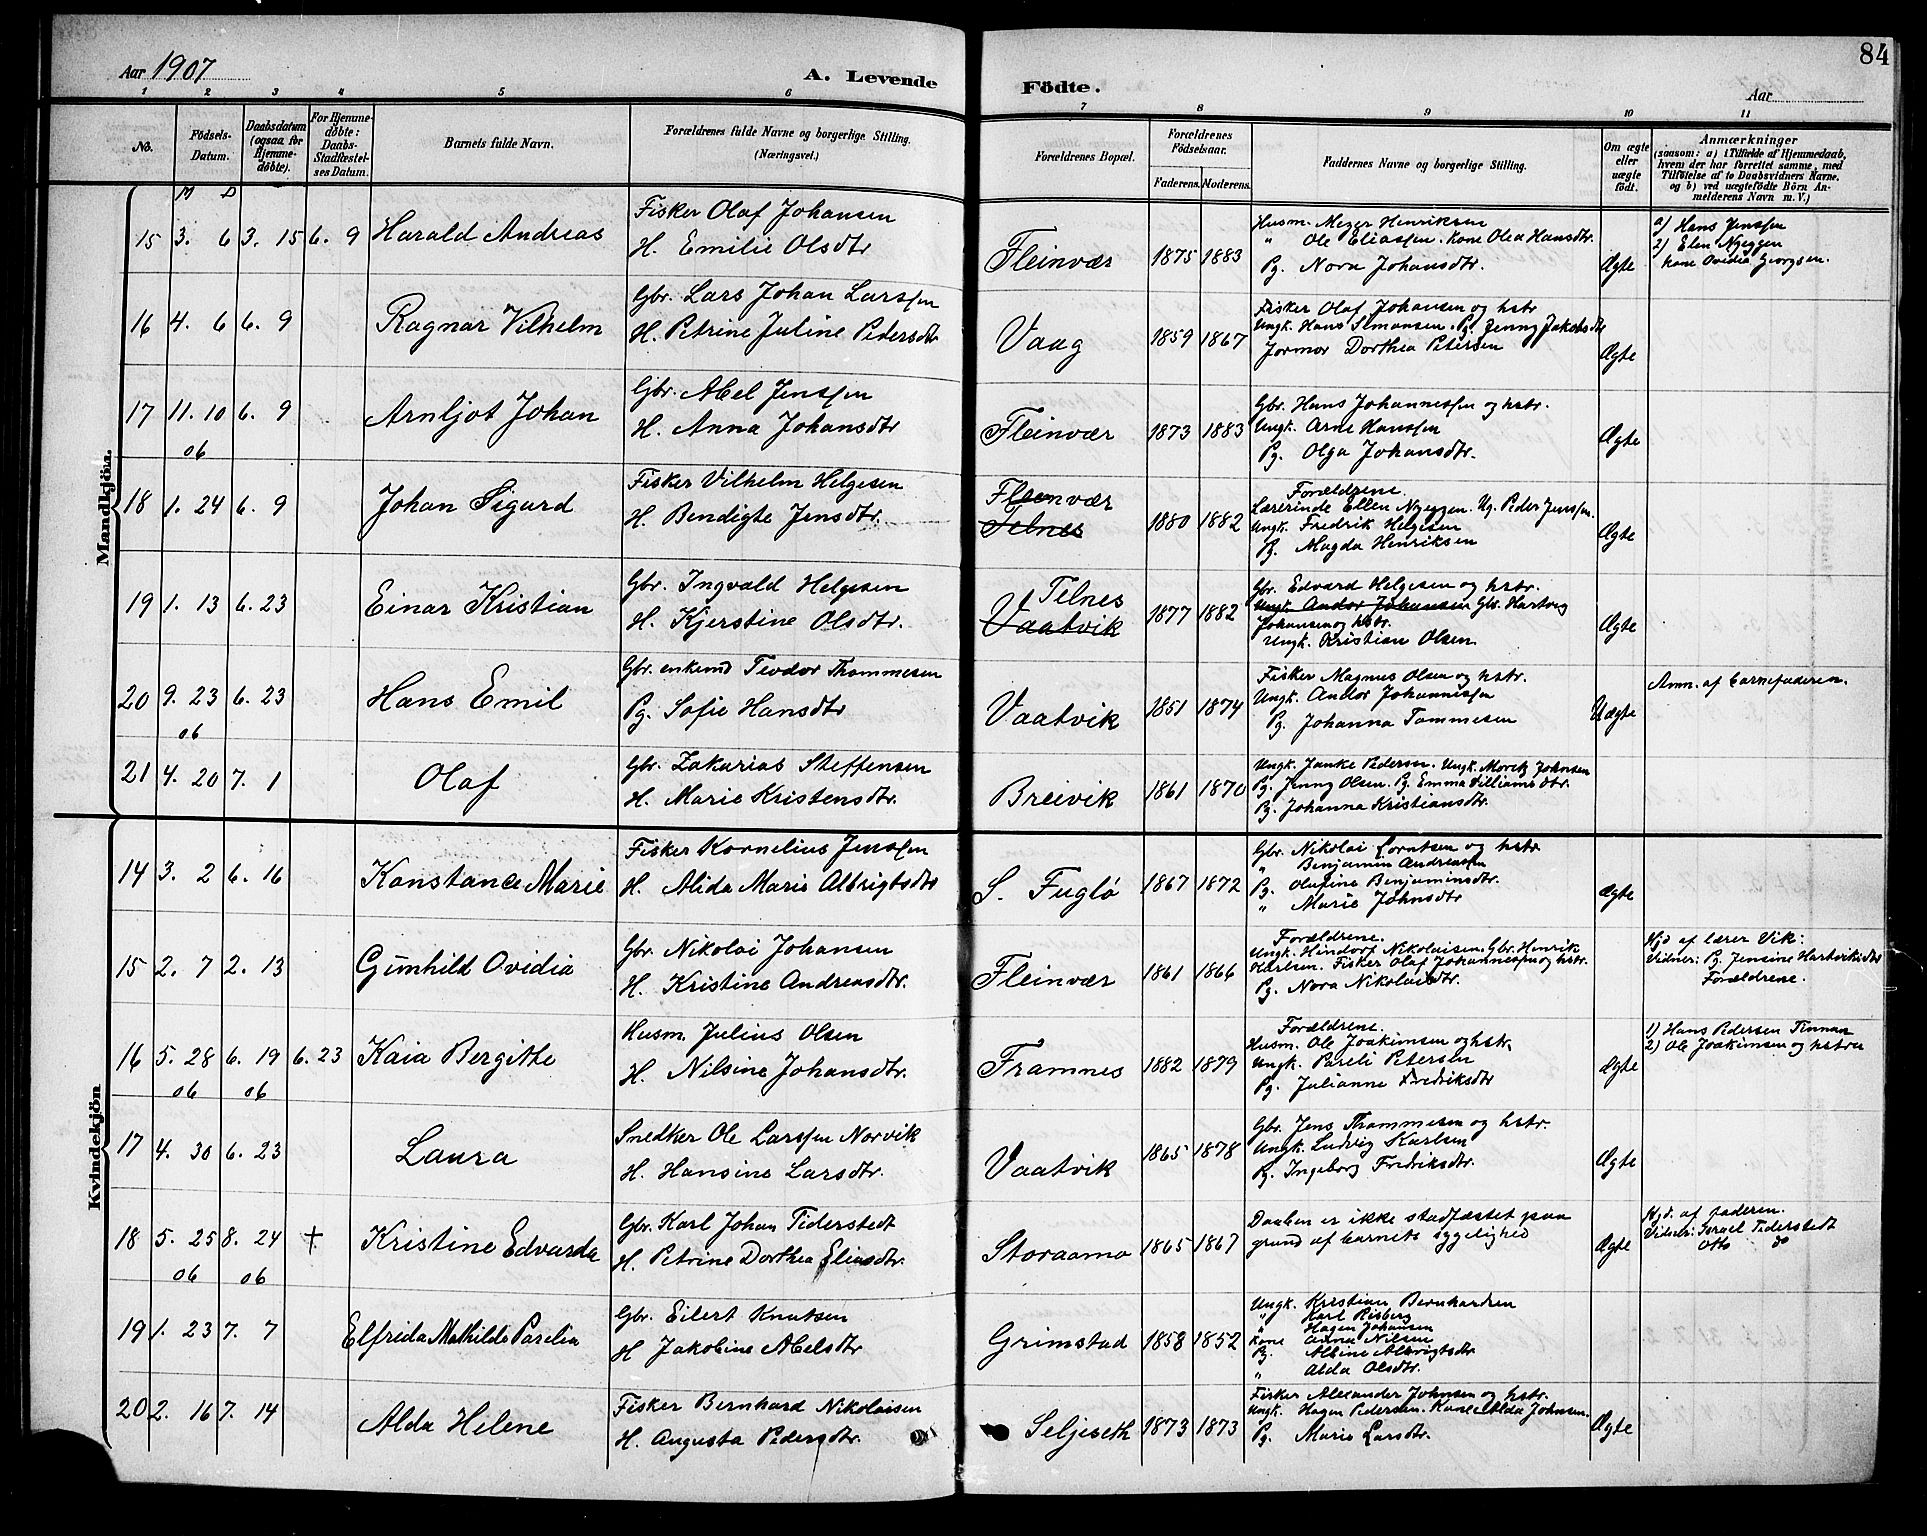 84
Aar 1907
A. Levende Födte.
Aar
1 2 3 4 5 6 7 8 9 10 11
No. Födsels-Datum. Daabsdatum (ogsaa for Hjemmedöbte). For Hjemmedöbte: Daabs-Stadfæstelses Datum. Barnets fulde Navn. Forældrenes fulde Navne og borgerlige Stilling. (Næringsvei.) Forældrenes Bopæl. Forældrenes Födselsaar. Faderens. Moderens. Faddernes Navne og borgerlige Stilling. Om ægte eller uægte födt. Anmærkninger (saasom: a) i Tilfælde af Hjemmedaab, hvem der har forrettet samme, med Tilföielse af to Daabsvidners Navne, og b) ved uægtefödte Börn Anmelderens Navn m. V.)
M D
Mandkjön.
15 3. 6 3. 15 6. 9 Harald Andreas
Fisker Olaf Johansen
H. Emilie Olsdtr
Fleinvær 1875 1883
Husm. Meyer Henriksen
" Ole Eliassen. Kone Olea Hansdtr.
Pg. Nora Johansdtr.
Ægte
a) Hans Jenssen
2) Elen Nyeggen
Kone Ovidia Georgsen.
16 4. 6 6. 9 Ragnar Vilhelm
Gbr. Lars Johan Larssen
H. Petrine Juline Pedersdtr
Vaag 1859 1867
Fisker Olaf Johansen og hstr
Ungk. Hans Simonsen. Pg. Jenny Jakobsdtr
Jormor Dorthea Petersen
Ægte
17 11. 10 6. 9 Arnljot Johan
06
Gbr. Abel Jenssen
H. Anna Johansdtr
Fleinvær 1873 1883
Gbr. Hans Johannessen og hstr.
Ungk. Arne Hanssen
Pg. Olga Johansdtr.
Ægte
18 1. 24 6. 9 Johan Sigurd
Fisker Vilhelm Helgesen
H. Bendigte Jensdtr.
Fleinvær
Telnes
1880 1882
Forældrene.
Lærerinde Ellen Nyeggen. Ug. Peder Jenssen.
Ungk. Fredrik Helgesen
Pg. Magda Henriksen
Ægte
19 1. 13 6. 23 Einar Kristian
Gbr. Ingvald Helgesen
H. Kjerstine Olsdtr.
Telnes
Vaatvik
1877 1882
Gbr. Edvard Helgesen og hstr.
Ungk. Andor Johansen Gbr. Hartvig
Johansen og hstr.
Ungk. Kristian Olsen
Ægte
20 9. 23 6. 23 Hans Emil
06
Gbr. enkemd Teodor Thommesen
Pg. Sofie Hansdtr
Vaatvik 1851 1874
Fisker Magnus Olsen og hstr.
Ungk. Andor Johannessen
Pg. Johanna Tommesen
Uægte
Anm. af barnefaderen.
21 4. 20 7. 1 Olaf
Gbr. Zakarias Steffensen
H. Marie Kristensdtr.
Breivik 1861 1870
Ungk. Janke Pedersen. Ungk. Moritz Johnsen
Pg. Jenny Olsen. Pg. Emma Villiamsdtr.
Pg. Johanna Kristiansdtr.
Kvindekjön
14 3. 2 6. 16 Konstance Marie
Fisker Kornelius Jenssen
H. Alida Marie Albrigtsdtr
S. Fuglö 1867 1872
Gbr. Nikolai Lorntsen og hstr
" Benjamin Andreassen
Pg. Olufine Benjaminsdtr.
" Marie Johnsdtr
Ægte
15 2. 7 2. 13 Gunhild Ovidia
Gbr. Nikolai Johansen
H. Kristine Andreasdtr.
Fleinvær 1861 1866
Forældrene.
Ungk. Hindorf Nikolaisen. Gbr. Henrik
Karlsen. Fisker Olaf Johannessen og hstr.
Pg. Nora Nikolaisdtr.
Hjd af lærer Vik:
Vidner: Pg. Jensine Hartviksdtr
Forældrene.
16 5. 28 6. 19 6. 23 Kaia Bergitte
06 06
Husm. Julius Olsen
H. Nilsine Johansdtr.
Framnes 1882 1879
Forældrene.
Husm. Ole Joakimsen og hstr.
Ungk. Pareli Petersen
Pg. Julianne Fredriksdtr
Ægte
1) Hans Pedersen Finnan
2) Ole Joakimsen og hstru
17 4. 30 6. 23 Laura
Snedker Ole Larssen Norvik
H. Hansine Larsdtr.
Vaatvik 1865 1878
Gbr. Jens Thommesen og hstr.
Ungk. Ludvig Karlsen
Pg. Ingeborg Fredriksdtr.
Ægte
18 5. 25 8. 24 + Kristine Edvarda
06 06
Gbr. Karl Johan Tiderstedt
H. Petrine Dorthea Eliasdtr.
Storaamo 1865 1867
Daaben er ikke stadfæstet paa
grund af barnets sygelighed
Ægte
Hjd. af faderen.
Vidner: Israel Tiderstedt
Otto do
19 1. 23 7. 7 Elfrida Mathilde Parelia
Gbr. Eilert Knutsen
H Jakobine Abelsdtr
Grimstad 1858 1852
Ungk. Kristian Bernhardsen
" Karl Risberg
" Hagen Johansen
Kone Anna Nilsen
Pg. Albine Albrigtsdtr
" Alda Olsdtr.
20 2. 16 7. 14 Alda Helene
Fisker Bernhard Nikolaisen
H. Augusta Pedersdtr.
Seljeseth 1873 1873
Fisker Alexander Johnsen og hstr.
Ungk. Hagen Pedersen. Kone Alda Johnsen.
Pg. Marie Larsdtr.
Ægte